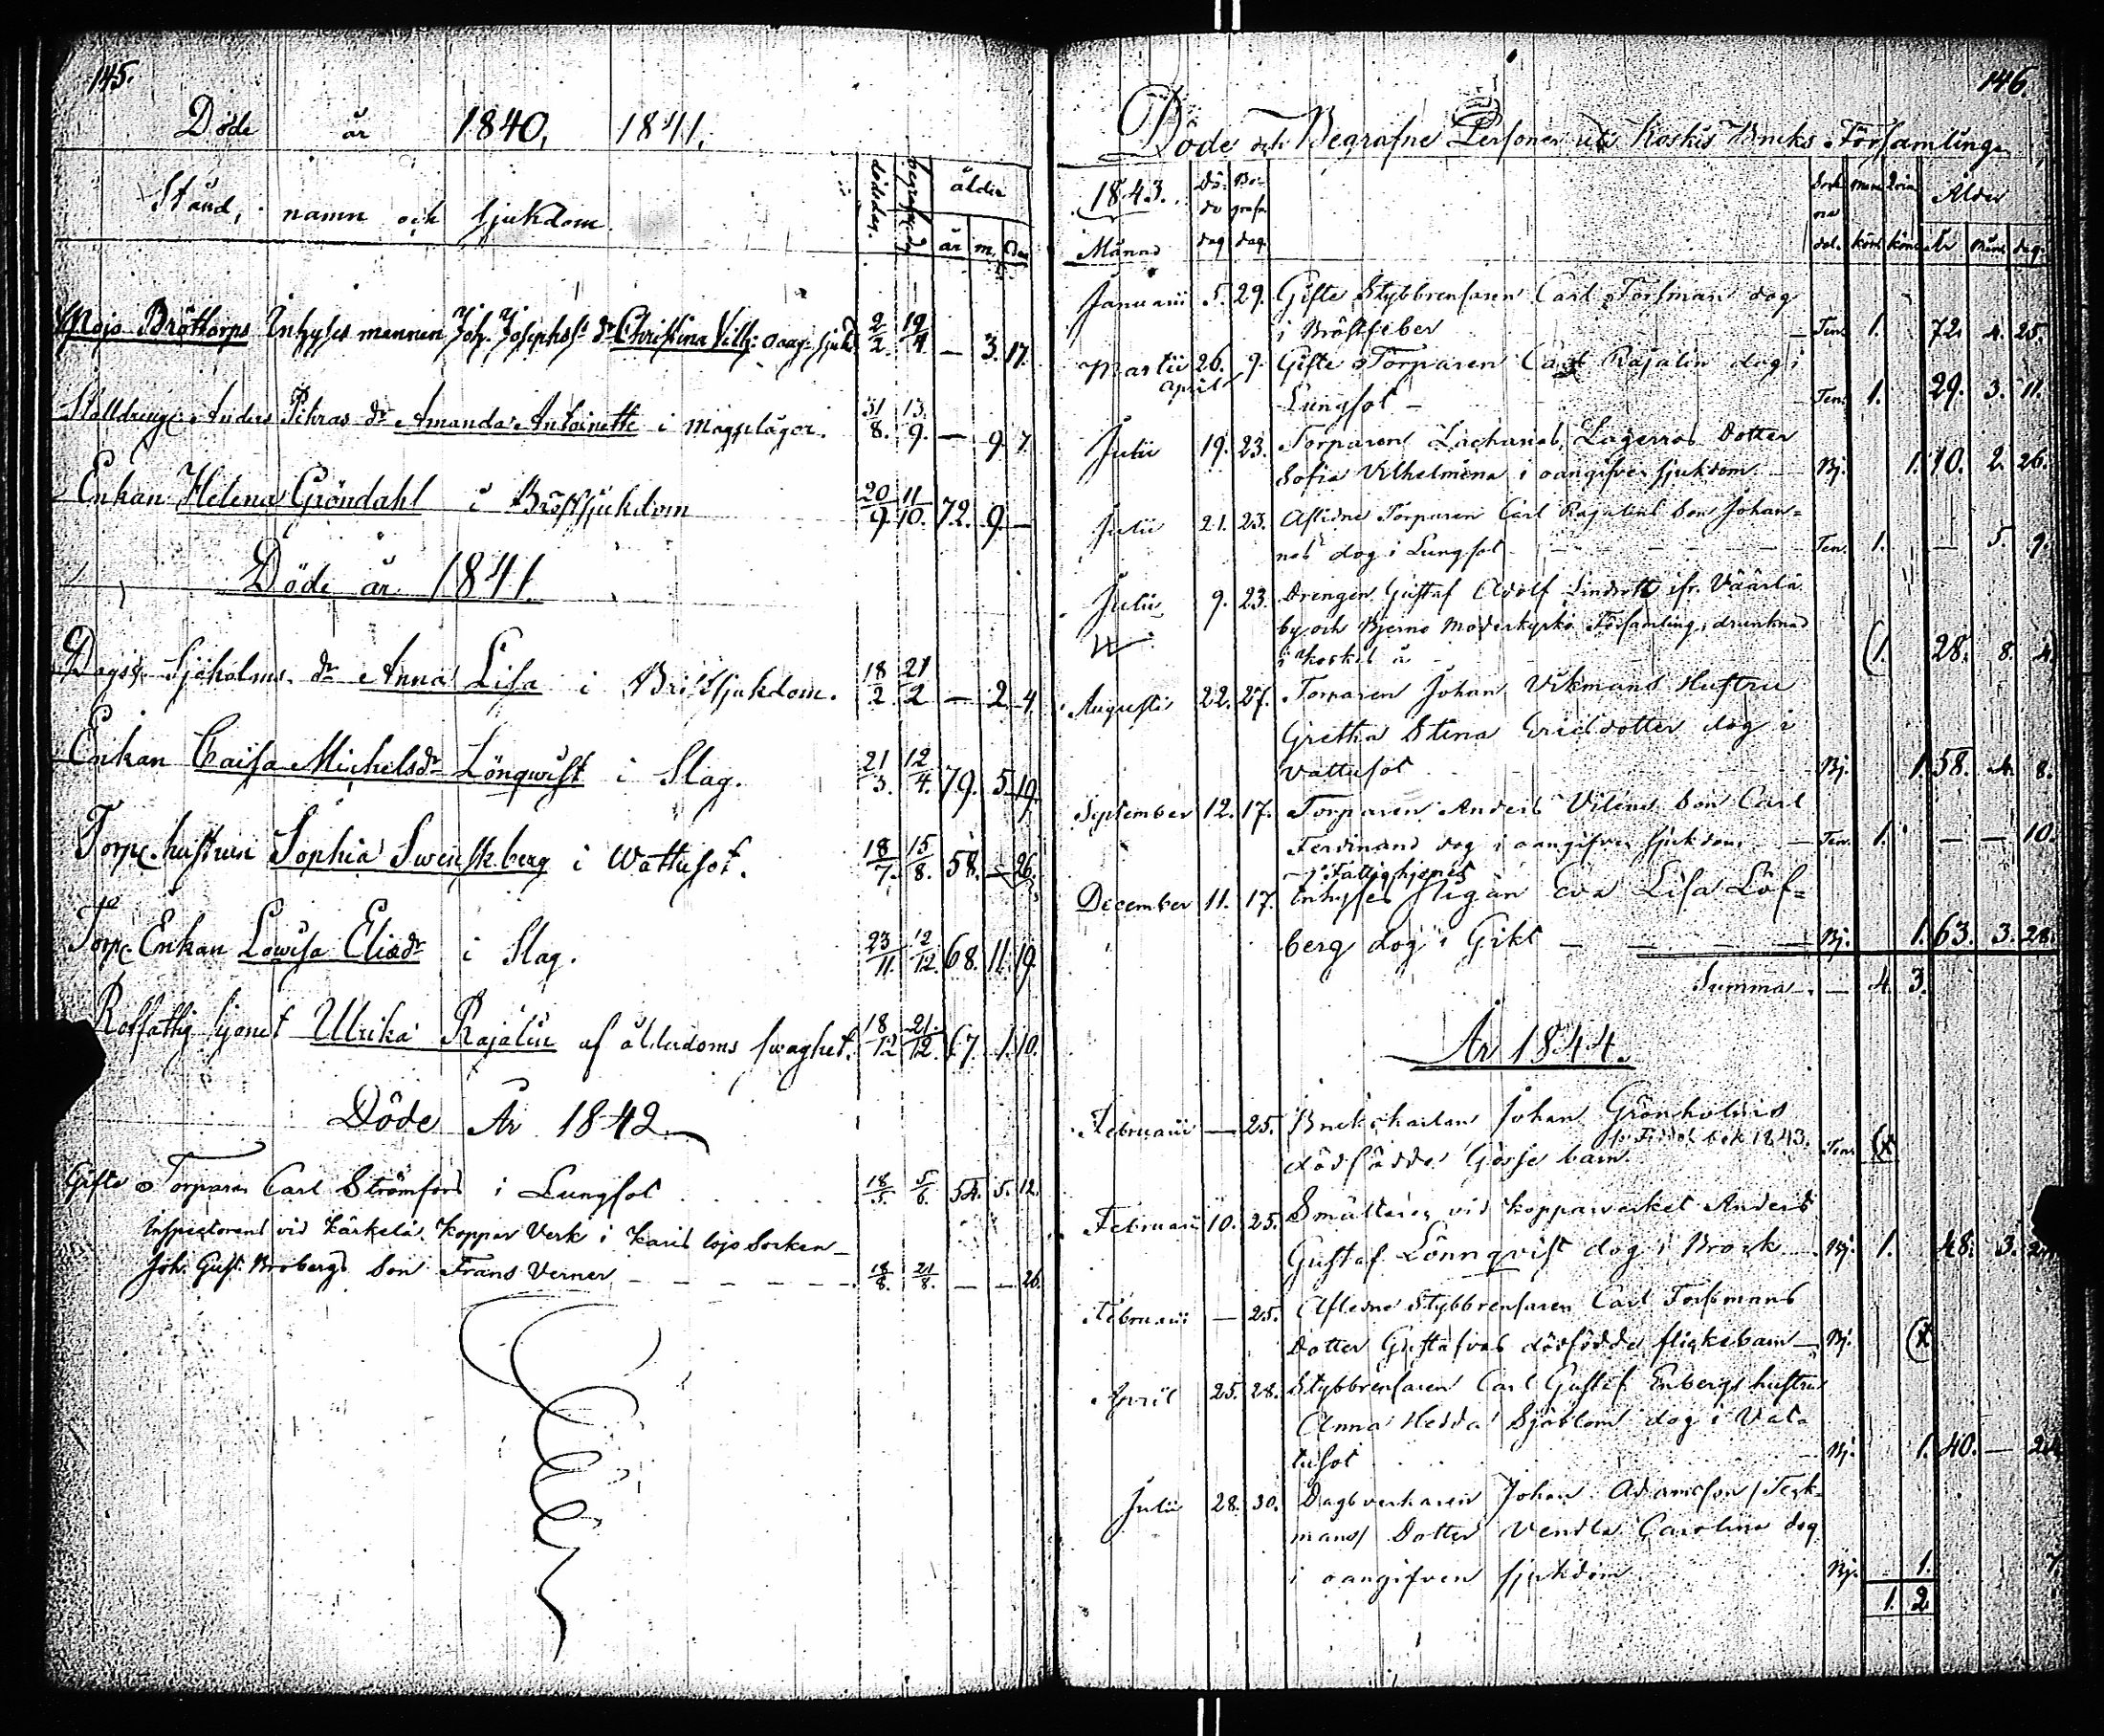 145.
Döde år 1840, 1841.
Stånd, namn och sjukdom.
dödsdag. begrafn.dag ålder
år m. dar
Mojo Bröttorps Inhyses mannen Joh. Josephss. dr Christina Vilh: oang: sjukd. 2/2. 19/4 — 3. 17.
Stalldrenge Anders Pihras dr Amanda Antoinette i magplågor. 31/8. 13/9. — 9. 7.
Enkan Helena Gröndahl i Bröstsjukdom 20/9 11/10. 72. 9 —
Döde år 1841.
Dagsk. Sjöholms dr Anna Lisa i Bröstsjukdom. 18/2. 21/2 — 2. 4.
Enkan Caisa Michelsdr Lönqwist i Slag. 21/3. 12/4. 79. 5. 19.
Torp. hustrun Sophia Swenskberg i Wattusot. 18/7. 15/8. 58. — 26.
Torp. Enkan Lowisa Eliædr i Slag. 23/11. 12/12. 68. 11. 19.
Rotfattig hjonet Ulrika Rajalin af ålderdoms swaghet. 18/12 21/12. 67. 1. 10.
Döde År 1842
Gifte Torparen Carl Strömfors i Lungsot 18/5. 5/6. 54. 5. 12.
Inspectorens vid Kärkelä Koppar Verk i Karis lojo Socken
Joh. Gust. Brobergs Son Frans Verner 18/8. 21/8. — — 26.
146.
Döde och Begrafne Personer uti Koskis Bruks Församling
1843. Dö- Be- Sock Man Qvin Ålder
de grafn. ne
Månad dag dag. del. kön kön år Mån dag.
Januarii 5. 29. Gifte Stybbrensaren Carl Forsman dog
i Bröstfeber — Ten. 1. 72. 4. 25.
Martii 26. 9. Gifte Torparen Carl Rajalin dog i
april
Lungsot — Ten. 1. 29. 3. 11.
Julii 19. 23. Torparens Zacharias Lagerros dotter
Sofia Vilhelmina i oangifven sjukdom — Bj. 1. 10. 2. 26.
Julii 21. 23. Aflidne Torparen Carl Rajalins son Johan=
nes dog i Lungsot — Ten. 1. — 5. 9.
Julii 9. 23. Drengen Gustaf Adolf Lindroth ifr. Väärlä
by och Bjerno Moderkyrko Församling, drunknad
i Koskis å (1. 28. 8. 4)
Augusti 22. 27. Torparen Johan Vikmans Hustru
Gretha Stina Ericsdotter dog i
Vattusot Bj. 1. 58. 8.
September 12. 17. Torparen Anders Viléns Son Carl
Ferdinand dog i oangifven sjukdom — Ten. 1. — — 10.
Fattighjonet
December 11. 17. Inhyses Eva Lisa Löf=
berg dog i Gikt — Bj. 1. 63. 3. 28.
Summa — 4. 3.
År 1844.
Februarii — 25. Bruks karlen Johan Grönholms
dödfödde Gosse barn. Ten.
Februarii 10. 25. Smältaren vid kopparverket Anders
Gustaf Lönnqvist dog i Brock — Bj. 1. 48. 3.
Februarii — 25. Aflidne Stybbrensaren Carl Forsmans
Dotter Gustafvas dödfödde flickebarn — Bj.
April 25. 28. Stybbrensaren Carl Gustaf Enbergs hustru
Anna Hedda Sjöblom dog i Vat=
tusot Bj. 1. 40. —
Julii 28. 30. Dagsverkaren Johan Adamsson /Teck=
mans/ Dotter Vendla Carolina dog
i oangifven sjukdom Bj. 1. 7.
1. 2